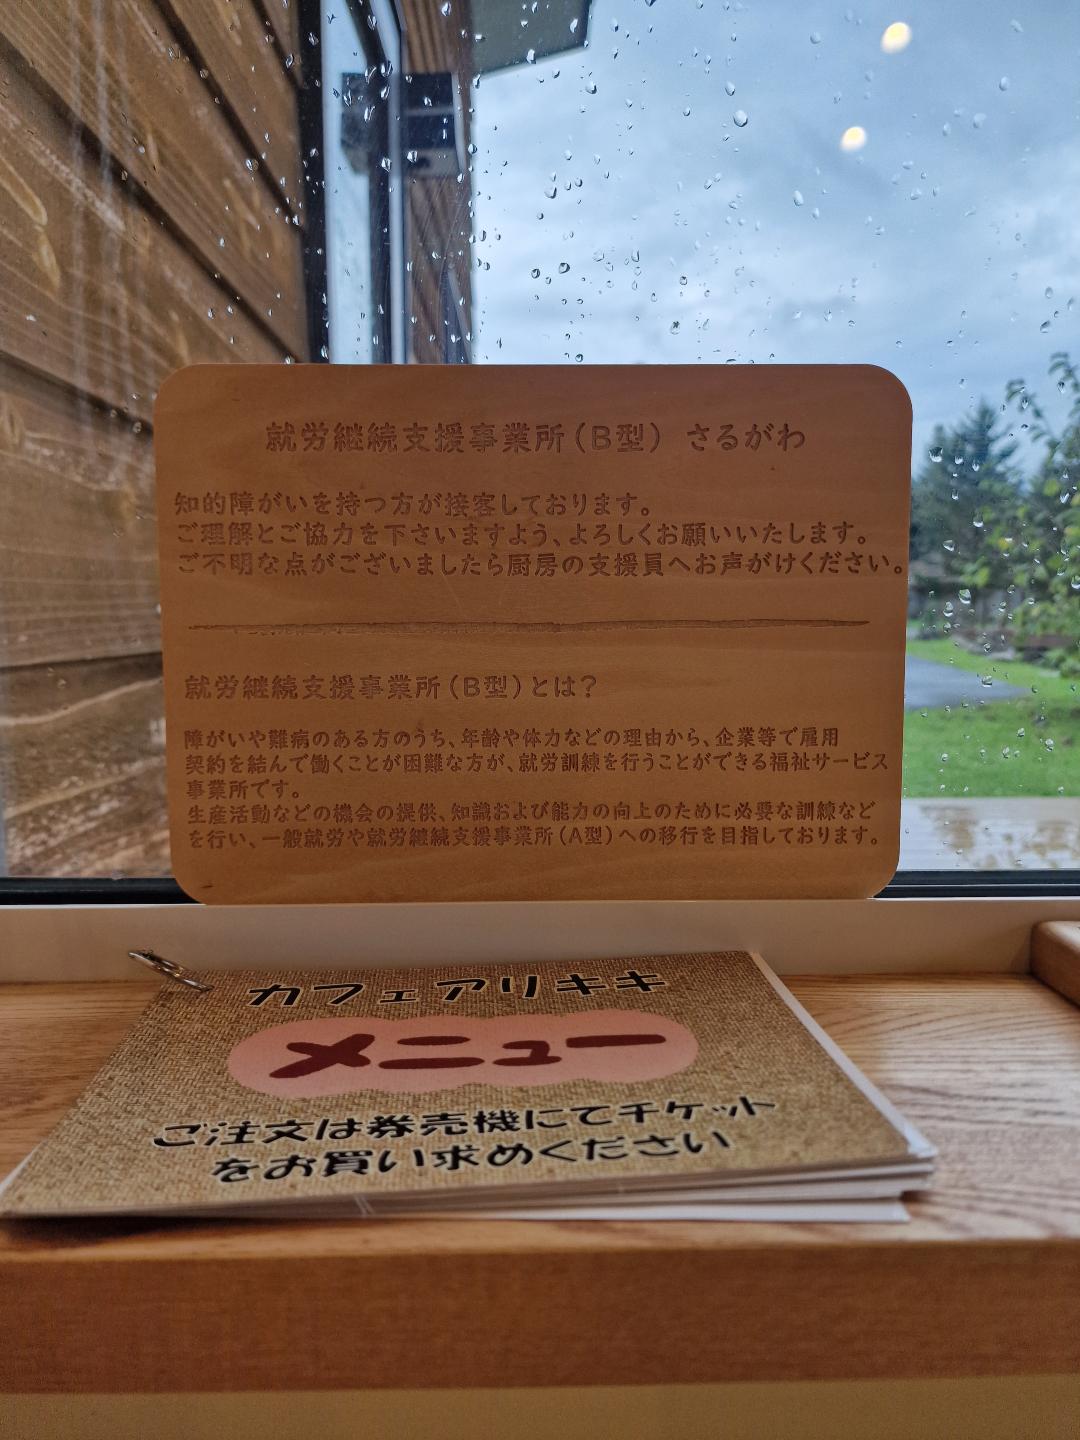 就労継続支援事業所(B型) さるがわ
知的障がいを持つ方が接客しております。
ご理解とご協力を下さいますよう、よろしくお願いいたします。
ご不明な点がございましたら厨房の支援員へお声がけください。
就労継続支援事業所(B型)とは?
障がいや難病のある方のうち、年齢や体力などの理由から、企業等で雇用
契約を結んで働くことが困難な方が、就労訓練を行うことができる福祉サービス
事業所です。
生産活動などの機会の提供、知識および能力の向上のために必要な訓練など
を行い、一般就労や就労継続支援事業所(A型)への移行を目指しております。
カフェアリキキ
メニュー
ご注文は券売機にてチケット
をお買い求めください